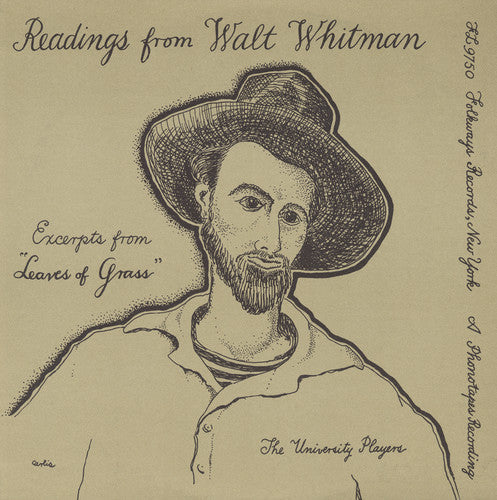 Readings from Walt Whitman
Excerpts from
"Leaves of Grass"
The University Players
Carlis
FL 9750 Folkways Records, New York A Phonotapes Recording